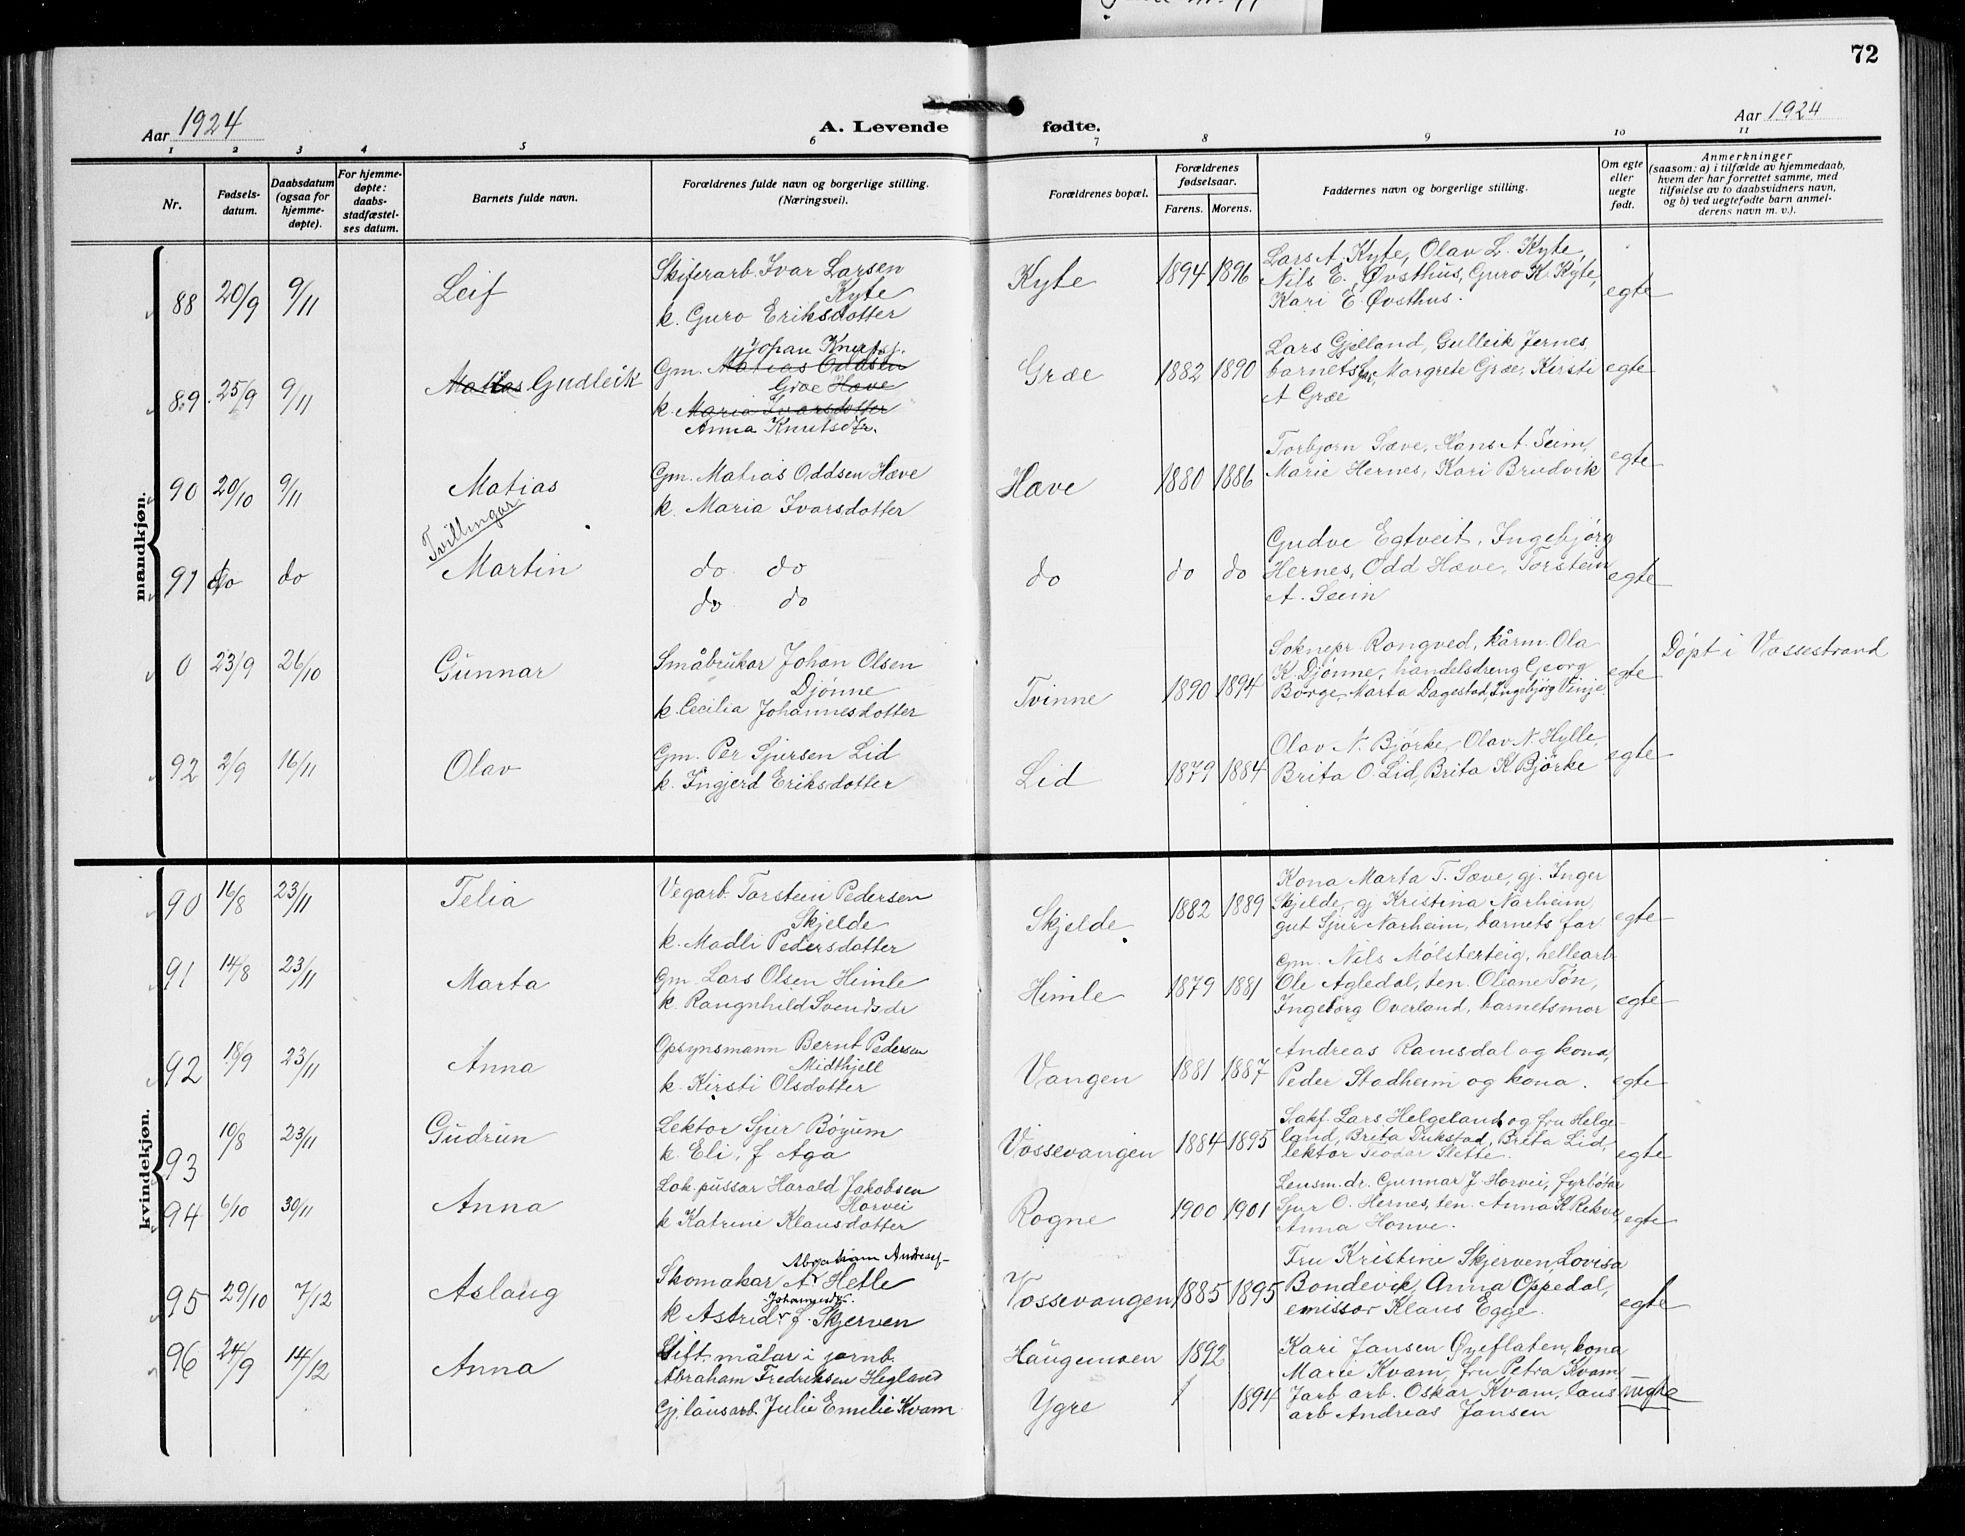 72
Aar 1924
A. Levende fødte.
Aar 1924
1 2 3 4 5 6 7 8 9 10 11
Nr.
Fødsels-
datum.
Daabsdatum
(ogsaa for
hjemme-
døpte).
For hjemme-
døpte:
daabs-
stadfæstel-
ses datum.
Barnets fulde navn.
Forældrenes fulde navn og borgerlige stilling.
(Næringsvei).
Forældrenes bopæl.
Forældrenes
fødselsaar.
Farens. Morens.
Faddernes navn og borgerlige stilling.
Om egte
eller
uegte
født.
Anmerkninger
(saasom: a) i tilfælde av hjemmedaab,
hvem der har forrettet samme, med
tilføielse av to daabsvidners navn,
og b) ved uegtefødte barn anmel-
derens navn m. v.).
mandkjøn.
88 20/9 9/11 Leif
Skiferarb. Ivar Larsen
Kyte
k. Guro Eriksdotter
Kyte 1894 1896
Lars A. Kyte, Olav L. Kyte
Nils E. Øvsthus, Guro K. Kyte,
Kari E. Øvsthus.
egte
89 25/9 9/11 Gudleik
Johan Knuts.
Gm. Matias Oddsen
Græ Hæve
k. Maria Ivarsdotter
Anna Knutsdtr.
Græ 1882 1890
Lars Gjelland, Gulleik Jernes
barnets far, Margrete Græ, Kersti
A Græ
egte
90 20/10 9/11 Matias
Gm. Matias Oddsen Hæve
k. Maria Ivarsdotter
Hæve 1880 1886
Torbjørn Sæve, Hans A. Seim,
Marie Hernes, Kari Brudvik
egte
Tvillingar
91 do do Martin
do do
do do
do do do
Gudve Egtveit, Ingebjørg
Hernes, Odd Hæve, Torstein
A. Seim
egte
0 23/9 26/10 Gunnar
Småbrukar Johan Olsen
Djønne
k. Cecilia Johannesdotter
Tvinne 1890 1894
Soknepr Rongved, kårm. Ola
K. Djønne, handelsdreng Georg
Børge, Marta Dagestad, Ingebjørg Vinje
egte
Døpt i Vossestrand
92 2/9 16/11 Olav
Gm. Per Sjursen Lid
k. Ingjerd Eriksdotter
Lid 1879 1884
Olav N. Bjørke, Olav N. Hylle,
Brita O. Lid, Brita K. Bjørke
egte
kvindekjøn.
90 16/8 23/11 Telia
Vegarb. Torstein Pedersen
Skjelde
k. Madli Pedersdotter
Skjelde 1882 1889
Kona Marta T. Sæve, gj. Inger
Skjelde, gj Kristina Narheim,
gut Sjur Narheim, barnets far
egte
91 14/8 23/11 Marta
Gm. Lars Olsen Himle
k. Rangnhild Svendsdr
Himle 1879 1881
Gm. Nils Mølsterteig, hellearb
Ole Agledal, ten. Oliane Tøn,
Ingeborg Overland, barnets mor
egte
92 18/9 23/11 Anna
Opsynsmann Bernt Pedersen
Midthjell
k. Kirsti Olsdotter
Vangen 1881 1887
Andreas Ramsdal og kona,
Peder Stadheim og kona.
egte
93 10/8 23/11 Gudrun
Lektor Sjur Bøyum
k. Eli, f Aga
Vossevangen 1884 1895
Sakf. Lars Helgeland og fru Helge-
land, Brita Dukstad, Brita Lid,
lektor Slette.
egte
94 6/10 30/11 Anna
Lok. pussar Harald Jakobsen
Horvei
k Katrine Klausdotter
Rogne 1900 1901
Lensm. dr. Gunnar J. Horvei, fyrbøtar
Sjur O. Hernes, ten. Anna K Rekve,
Anna Honve.
egte
95 29/10 7/12 Aslaug
Abraham Andreas-
Skomakar A Helle
Johannesdr.
k Astrid f. Skjerven
Vossevangen 1885 1895
Fru Kristine Skjerven, Lovisa
Bondevik, Anna Oppedal,
emissær Klaus Egge.
egte
96 24/9 14/12 Anna
Sift. målar i jarnb.
Abraham Fredriksen Hegland
Gj, lausarb. Julie Emilie Kvam
Haugemoen 1892
Ygre 1894
Kari Jansen Øyeflaten, kona
Marie Kvam, fru Petra Kvam
Jarb arb. Oskar Kvam, laus
arb Andreas Jansen
uegte